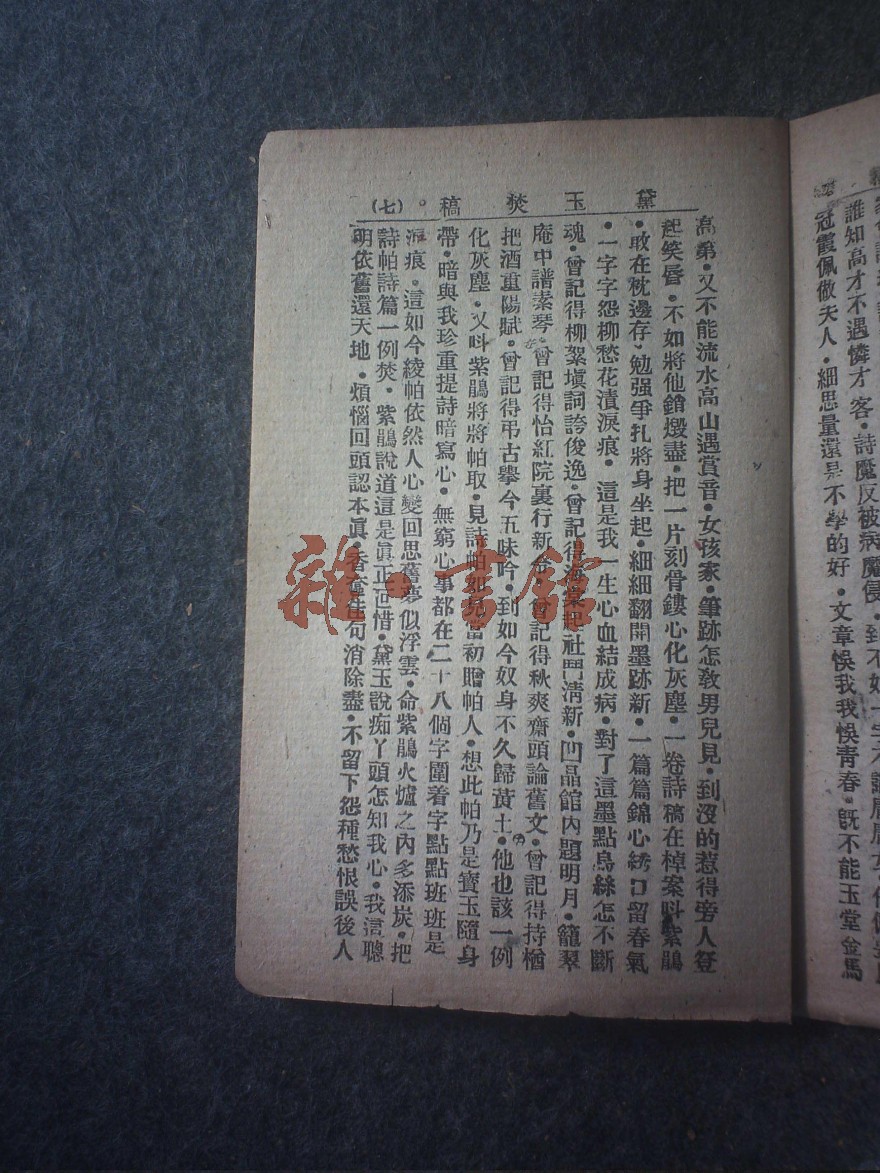 誰知高才不遇憐才客•詩魔反被病魔侵•到不如一字不識
冠霞佩做夫人•細思量還是不學的好•文章悞我我悞青春•旣不能玉堂金馬
黛玉焚稿。(七)
高第•又不能流水高山遇賞音•女孩家•筆跡怎敎男兒見•到沒的惹得旁人
起笑唇•不如將他銷燬盡•把一片刻骨鏤心化灰塵•一卷詩稿在棹案呌紫鵑
•敢在枕邊存•勉强爭扎將身坐起•細細翻開墨跡新•一篇篇錦心綉口留春氣
•一字字怨柳愁花漬淚痕•這是我一生心血結成病•對了這墨點烏絲怎不斷
魂•曾記得柳絮塡詞誇俊逸•曾記得海棠起社鬥淸新•凹晶館內題明月•籠翠
庵中譜素琴•曾記得怡紅院裏行新令•曾記得秋爽齋頭論舊文•曾記得持楢
把酒重陽賦•曾記得弔古攀今五味吟•到如今奴身不久歸黃土•他也該一例
化灰塵•又呌紫鵑將將帕取•見詩帕如見當初贈帕人•想此帕乃是寶玉隨身
帶•暗與我珍重提詩暗寫心•無窮心事都在二十八個字圍着字點點班班是
淚痕•這如今綾帕依然人心變回思舊夢似浮雲•命紫鵑火爐之內多添炭•把
詩帕詩篇一例焚•紫鵑說道這是眞正可惜•黛玉說痴丫頭怎知我心•我這聰
明依舊還天地•煩惱回頭認本眞•香奩佳句消除盡•不留下怨種愁恨誤後人
雜•書館